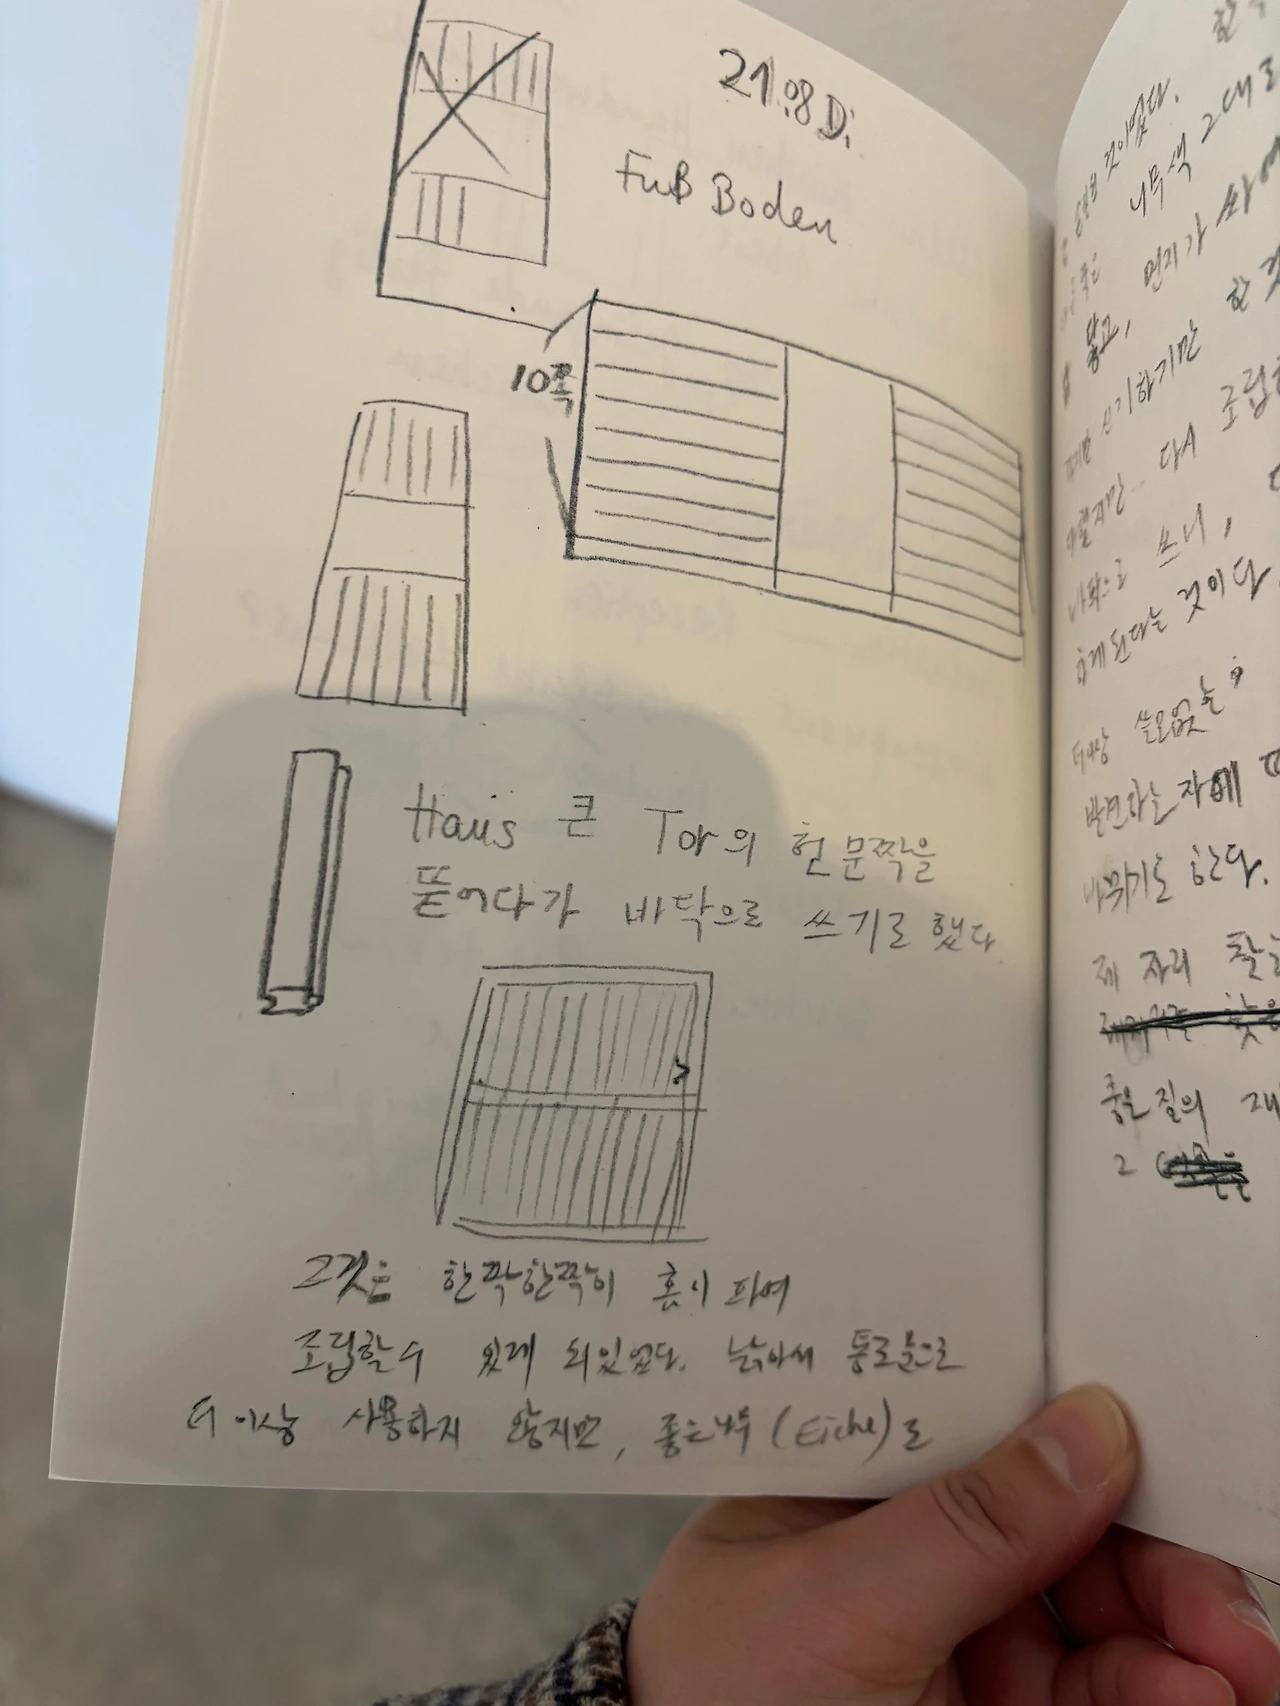 21.08 Di
Fuß Boden
10쪽
Haus 큰 Tor의 헌 문짝을
뜯어다가 바닥으로 쓰기로 했다.
그것은 한짝한짝이 홈이 파여
조립할 수 있게 되있었다. 낡아서 통로문으로
더 이상 사용하지 않지만, 좋은 나무 (Eiche)로
것이었다.
나무색 그대로
닿고, 먼지가 쌓여
쓰기하기만 한 것
다시 조립
바닥으로 쓰니,
하게 된다는 것이다.
더이상 쓸모없는
발견하는 자에
바뀌기도 한다.
제 자리 찾는
좋은 질의 재
그